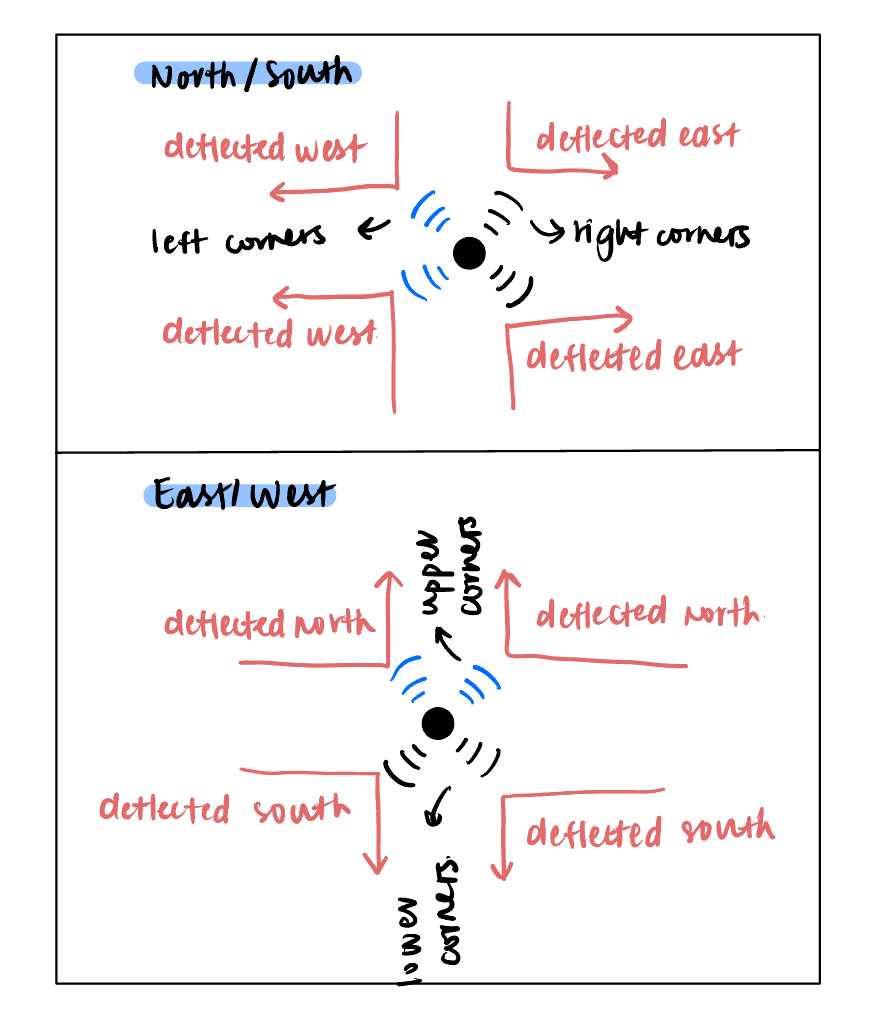 North/South
deflected west
deflected east
left corners
right corners
deflected west
deflected east
East/West
upper
corners
deflected north
deflected north
deflected south
deflected south
lower
corners.